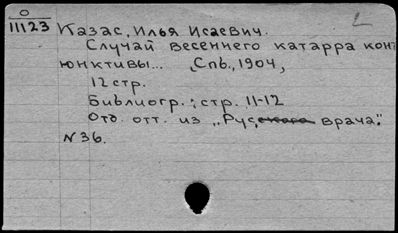 О
11123
Казас, Илья Исаевич.
Случай весеннего катарра конъ
юнктивы... Спб., 1904,
12 стр.
Библиогр.: стр. 11-12
Отд. отт. из „Рус. врача".
N 36.